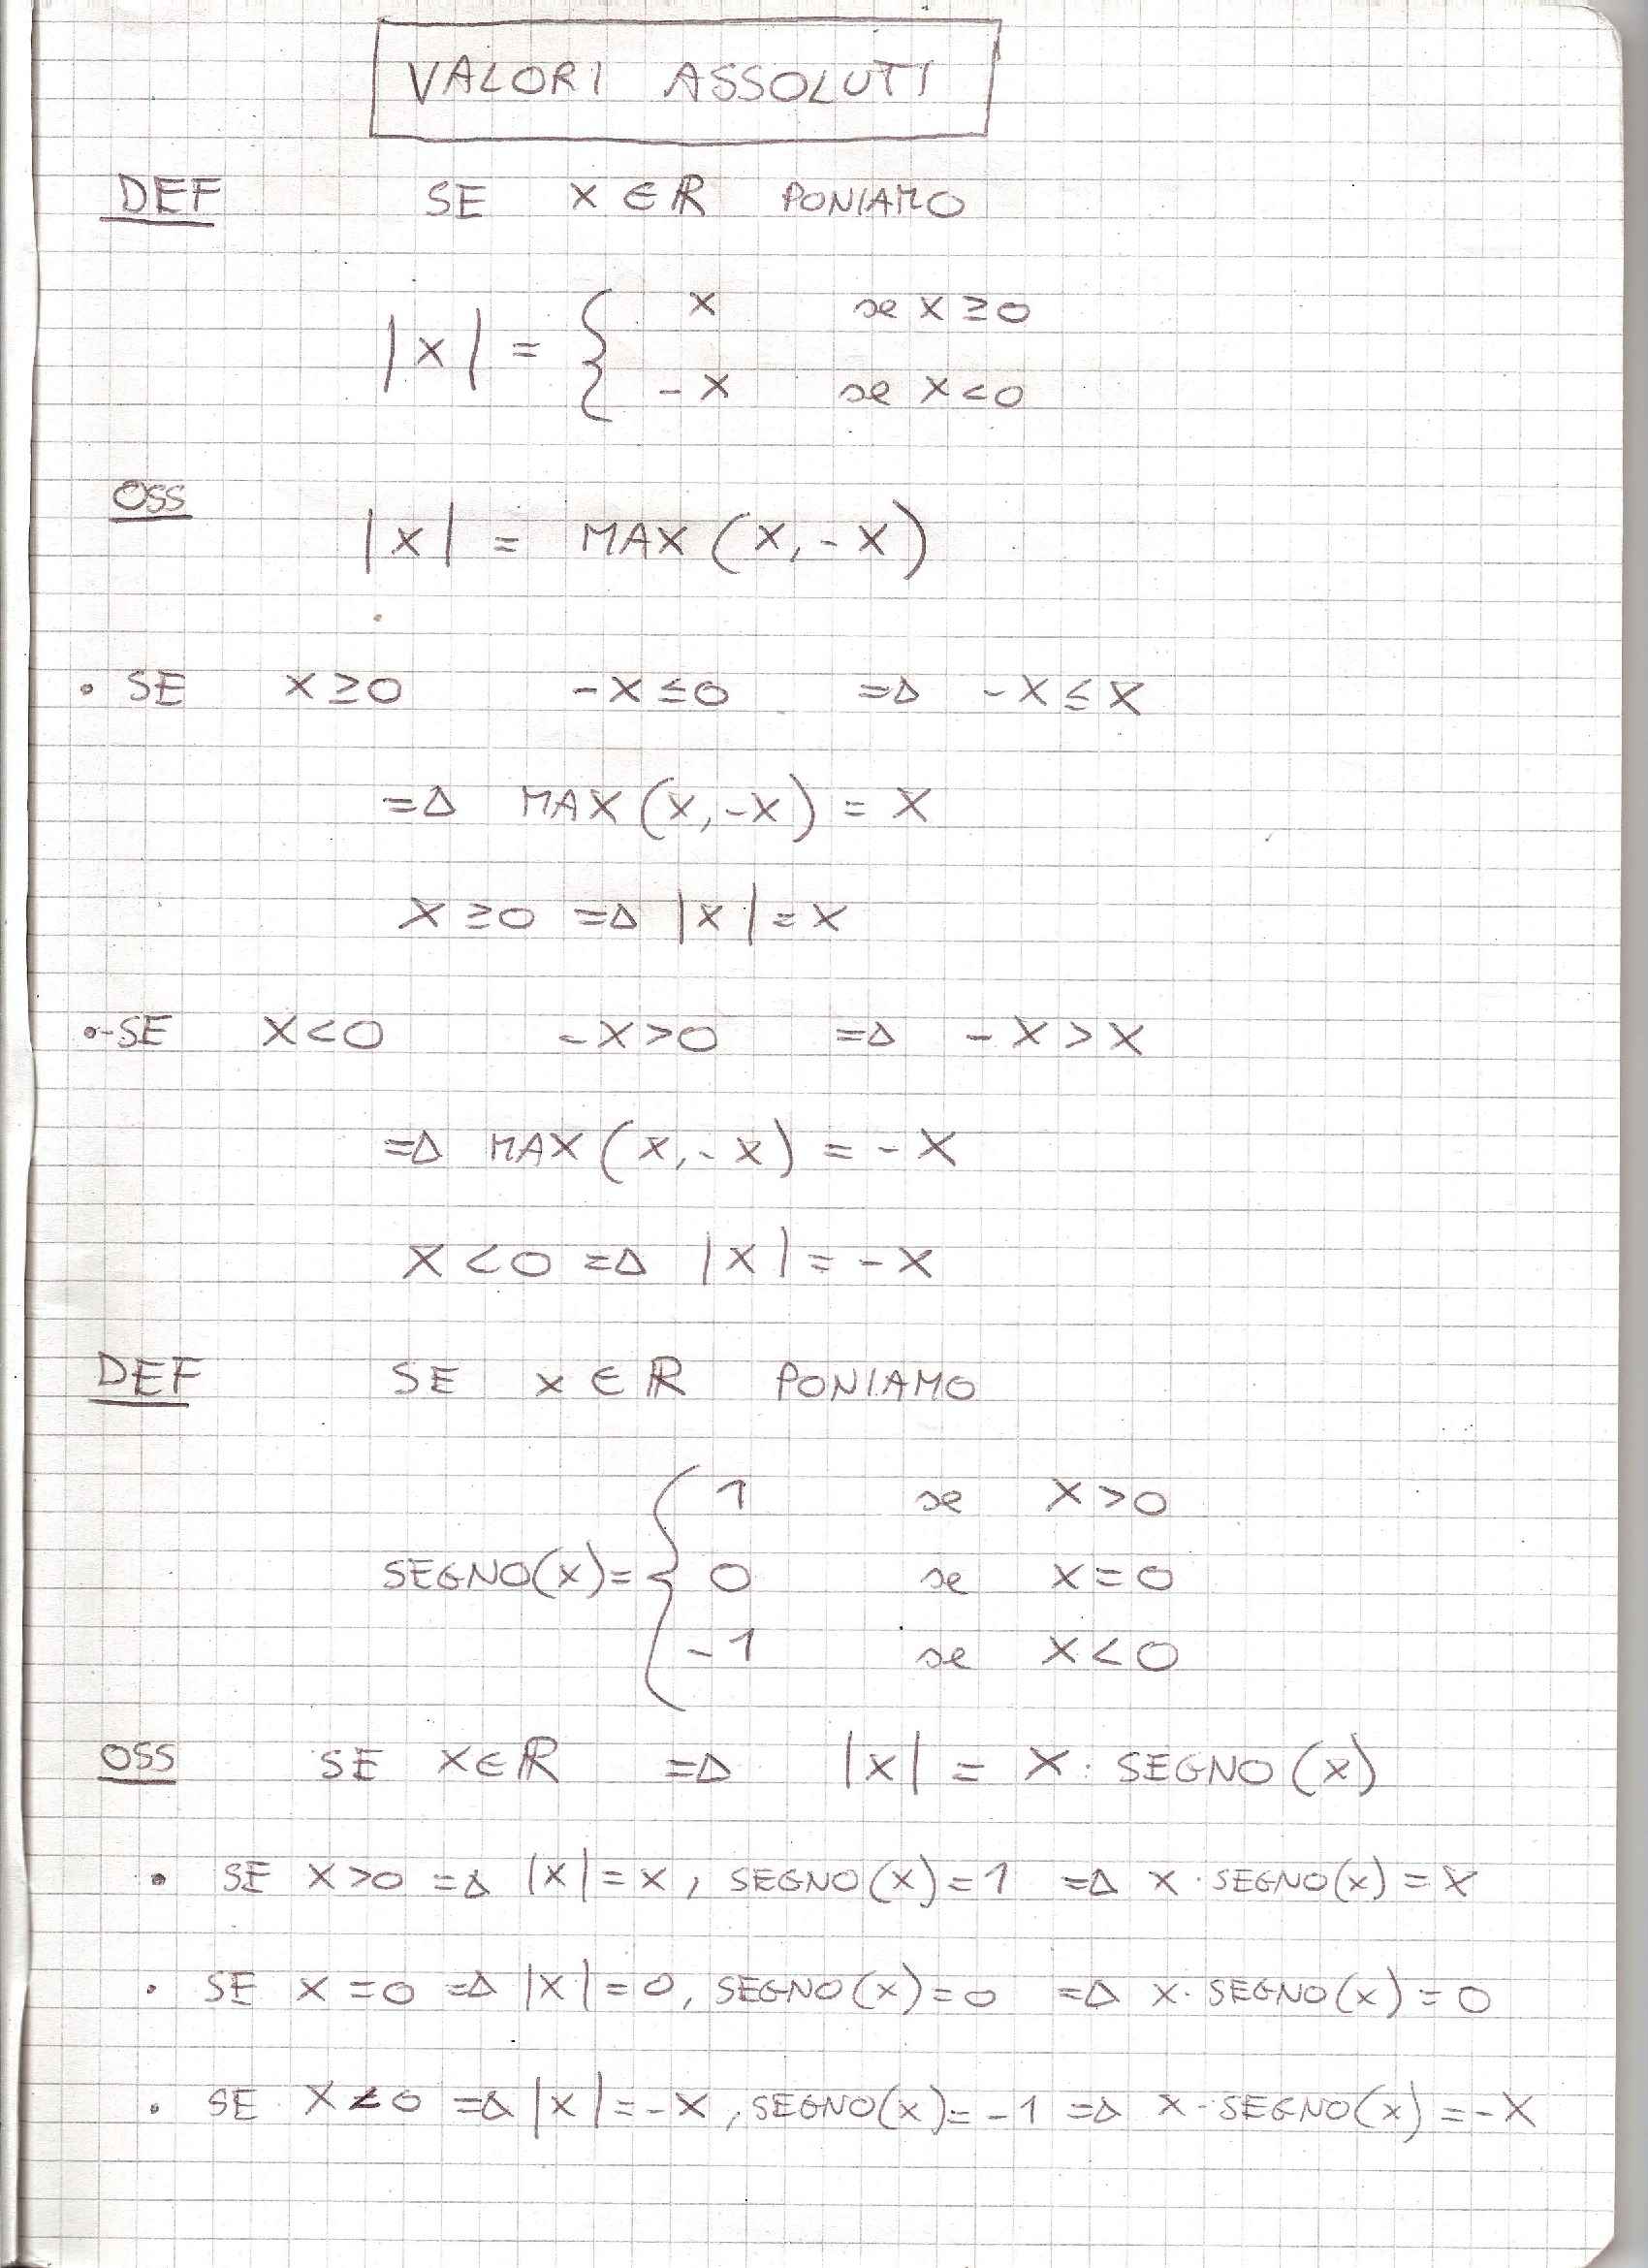 VALORI ASSOLUTI
DEF SE X ∈ ℝ PONIAMO
|X| = { X se X ≥ 0
-X se X < 0
OSS
|X| = MAX (X, -X)
• SE X ≥ 0 -X ≤ 0 ⇒ -X ≤ X
⇒ MAX (X, -X) = X
X ≥ 0 ⇒ |X| = X
• -SE X < 0 -X > 0 ⇒ -X > X
⇒ MAX (X, -X) = -X
X < 0 ⇒ |X| = -X
DEF SE X ∈ ℝ PONIAMO
SEGNO(X) = { 1 se X > 0
0 se X = 0
-1 se X < 0
OSS SE X ∈ ℝ ⇒ |X| = X · SEGNO (X)
• SE X > 0 ⇒ |X| = X, SEGNO(X) = 1 ⇒ X · SEGNO(X) = X
• SE X = 0 ⇒ |X| = 0, SEGNO(X) = 0 ⇒ X · SEGNO(X) = 0
• SE X < 0 ⇒ |X| = -X, SEGNO(X) = -1 ⇒ X · SEGNO(X) = -X